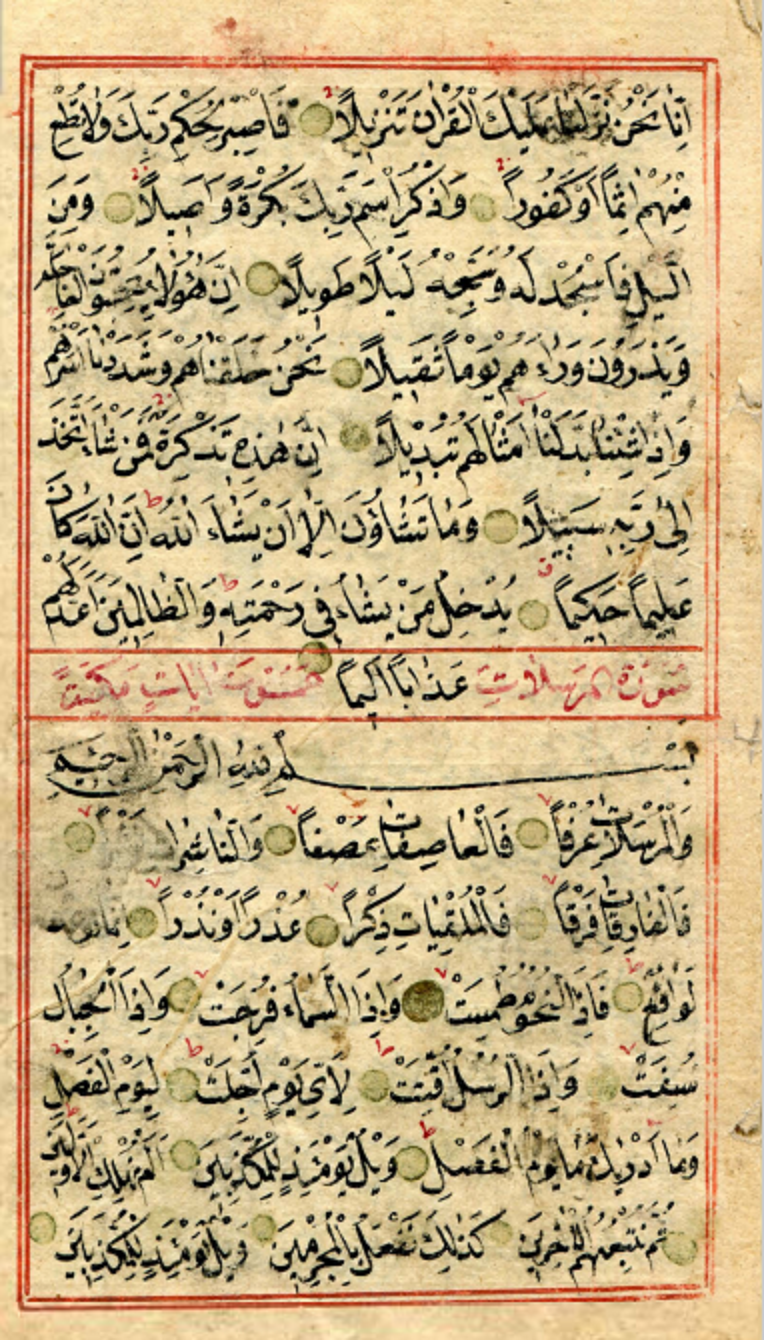 اِنَّا نَحْنُ نَزَّلْنَا عَلَيْكَ الْقُرْاٰنَ تَنْزِيلًا فَاصْبِرْ لِحُكْمِ رَبِّكَ وَلَا تُطِعْ
مِنْهُمْ اٰثِمًا اَوْ كَفُورًا وَاذْكُرِ اسْمَ رَبِّكَ بُكْرَةً وَاَصِيلًا وَمِنَ
الَّيْلِ فَاسْجُدْ لَهُ وَسَبِّحْهُ لَيْلًا طَوِيلًا اِنَّ هٰؤُلَاءِ يُحِبُّونَ الْعَاجِلَةَ
وَيَذَرُونَ وَرَاءَهُمْ يَوْمًا ثَقِيلًا نَحْنُ خَلَقْنَاهُمْ وَشَدَدْنَا اَسْرَهُمْ
وَاِذَا شِئْنَا بَدَّلْنَا اَمْثَالَهُمْ تَبْدِيلًا اِنَّ هٰذِهِ تَذْكِرَةٌ فَمَنْ شَاءَ اتَّخَذَ
اِلٰى رَبِّهِ سَبِيلًا وَمَا تَشَاؤُنَ اِلَّا اَنْ يَشَاءَ اللّٰهُ اِنَّ اللّٰهَ كَانَ
عَلِيمًا حَكِيمًا يُدْخِلُ مَنْ يَشَاءُ فِي رَحْمَتِهِ وَالظَّالِمِينَ اَعَدَّ لَهُمْ
سُورَةُ الْمُرْسَلَاتِ عَذَابًا اَلِيمًا خَمْسُونَ اٰيَاتٍ مَكِّيَّةٌ
بِسْمِ اللّٰهِ الرَّحْمٰنِ الرَّحِيمِ
وَالْمُرْسَلَاتِ عُرْفًا فَالْعَاصِفَاتِ عَصْفًا وَالنَّاشِرَاتِ نَشْرًا
فَالْفَارِقَاتِ فَرْقًا فَالْمُلْقِيَاتِ ذِكْرًا عُذْرًا اَوْ نُذْرًا اِنَّمَا تُوعَدُونَ
لَوَاقِعٌ فَاِذَا النُّجُومُ طُمِسَتْ وَاِذَا السَّمَاءُ فُرِجَتْ وَاِذَا الْجِبَالُ
نُسِفَتْ وَاِذَا الرُّسُلُ اُقِّتَتْ لِاَيِّ يَوْمٍ اُجِّلَتْ لِيَوْمِ الْفَصْلِ
وَمَا اَدْرٰيكَ مَا يَوْمُ الْفَصْلِ وَيْلٌ يَوْمَئِذٍ لِلْمُكَذِّبِينَ اَلَمْ نُهْلِكِ الْاَوَّلِينَ
ثُمَّ نُتْبِعُهُمُ الْاٰخِرِينَ كَذٰلِكَ نَفْعَلُ بِالْمُجْرِمِينَ وَيْلٌ يَوْمَئِذٍ لِلْمُكَذِّبِينَ